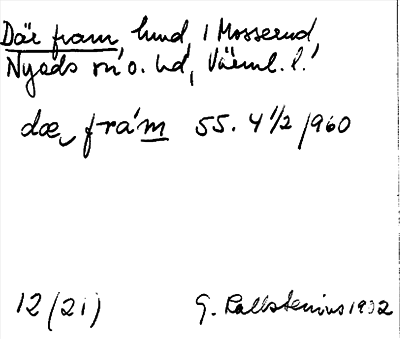 Där fram, lund, i Mosserud,
Nyeds sn o. hd, Värml. l.
dæ frám 55. 4 1/2 /960
12 (21) G. Kallstenius 1932